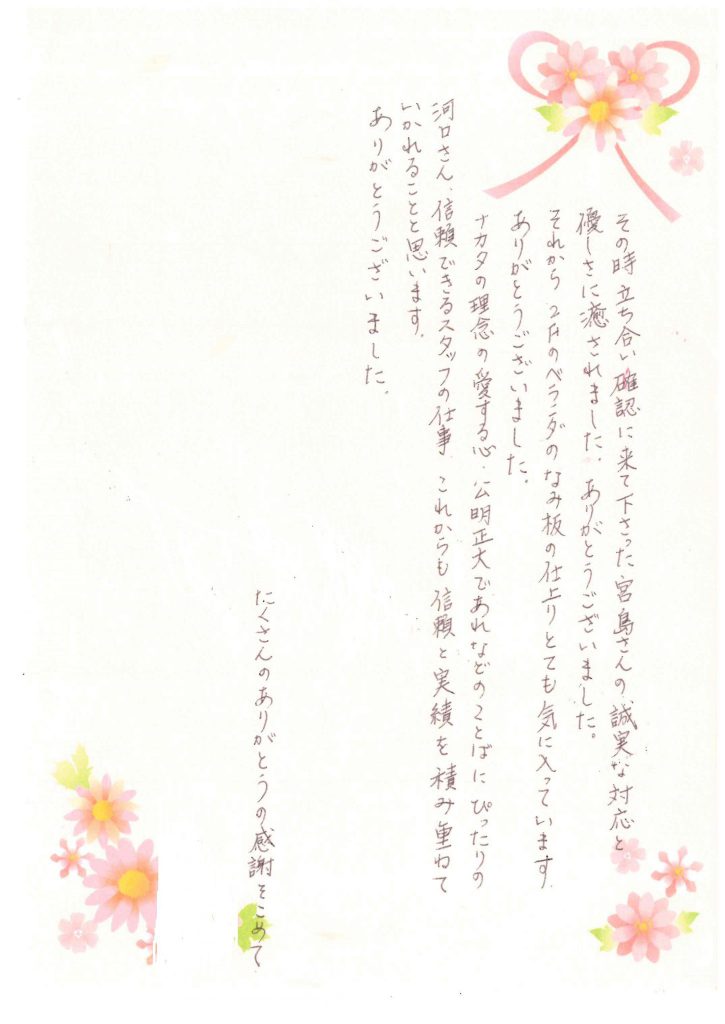 その時立ち合い確認に来て下さった宮島さんの誠実な対応と
優しさに癒されました。ありがとうございました。
それから 2Fのベランダのなみ板の仕上りとても気に入っています
ありがとうございました。
ナカタの理念の愛する心、公明正大であれなどのことばにぴったりの
河口さん、信頼できるスタッフの仕事、これからも信頼と実績を積み重ねて
いかれることと思います。
ありがとうございました。
たくさんのありがとうの感謝をこめて